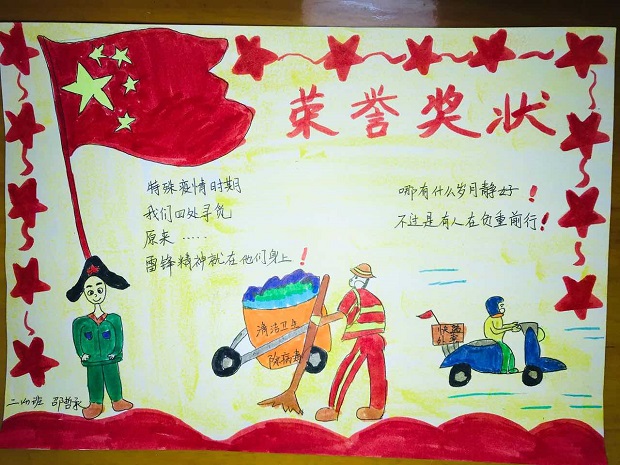 荣誉奖状
特殊疫情时期
我们四处寻觅
原来.....
雷锋精神就在他们身上！
哪有什么岁月静好！
不过是有人在负重前行！
清洁卫生
除病毒
二（4）班 邵哲承